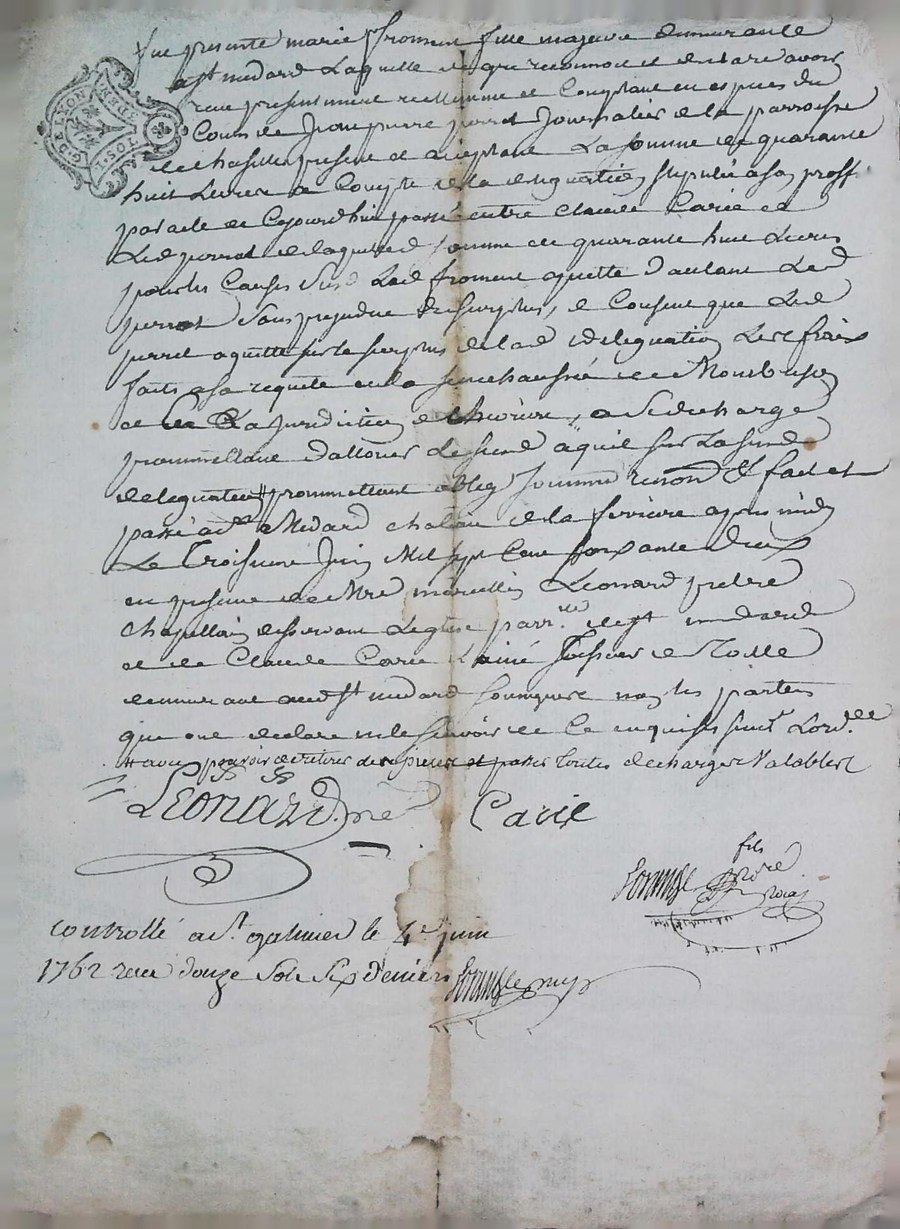 fut presente marie froment fille majeure demeurante
a St medard Laquelle de gre reconnoit et declare avoir
receu presentement reellement et Comptant en especes du
Cours de Jean pierre perrot Journalier de la parroisse
de chaselles present et acceptant La somme de quarante
huit Livres a Compte de la deleguation stipulée a son proffit
par acte de Cejourdhui passé entre claude Carié et
Led perrot de laquelle somme de quarante huit Livres
pour les Causes Susd Lad froment aquitte d'autant Led
perrot Sans prejudice du Surplus, et Consent que Led
perrot aquitte sur le surplus de lad deleguation Les frais
faits a sa requete en la senechaussée de Montbrison
et en La Juridiction de , a Sa decharge
promettant d'allouer Le Susd aquit sur La susd
deleguation # promettant oblig soummis renond &c fait et
passé aud St Medard chateau de la ferriere apres midy
Le Troisieme Juin Mil sept Cent soixante deux
en presence de Mre marcellin Léonard prêtre
chapellain desservant Leglise parr.lle de St medard
et de Claude Carié Lainé Tissier de Toille
demeurant aud St medard soussignes non les parties
que ont declaré ne le sçavoir de Ce enquises suivt Lord.ce
# avec pouvoir de retirer des pieces et passer Toutes decharges Valables
G DE LYON
DEM
1 SOL
Léonard pre
Carié
fils
Noré
controllé a St galmier le 4e juin
1762 receu douze Sols Six deniers